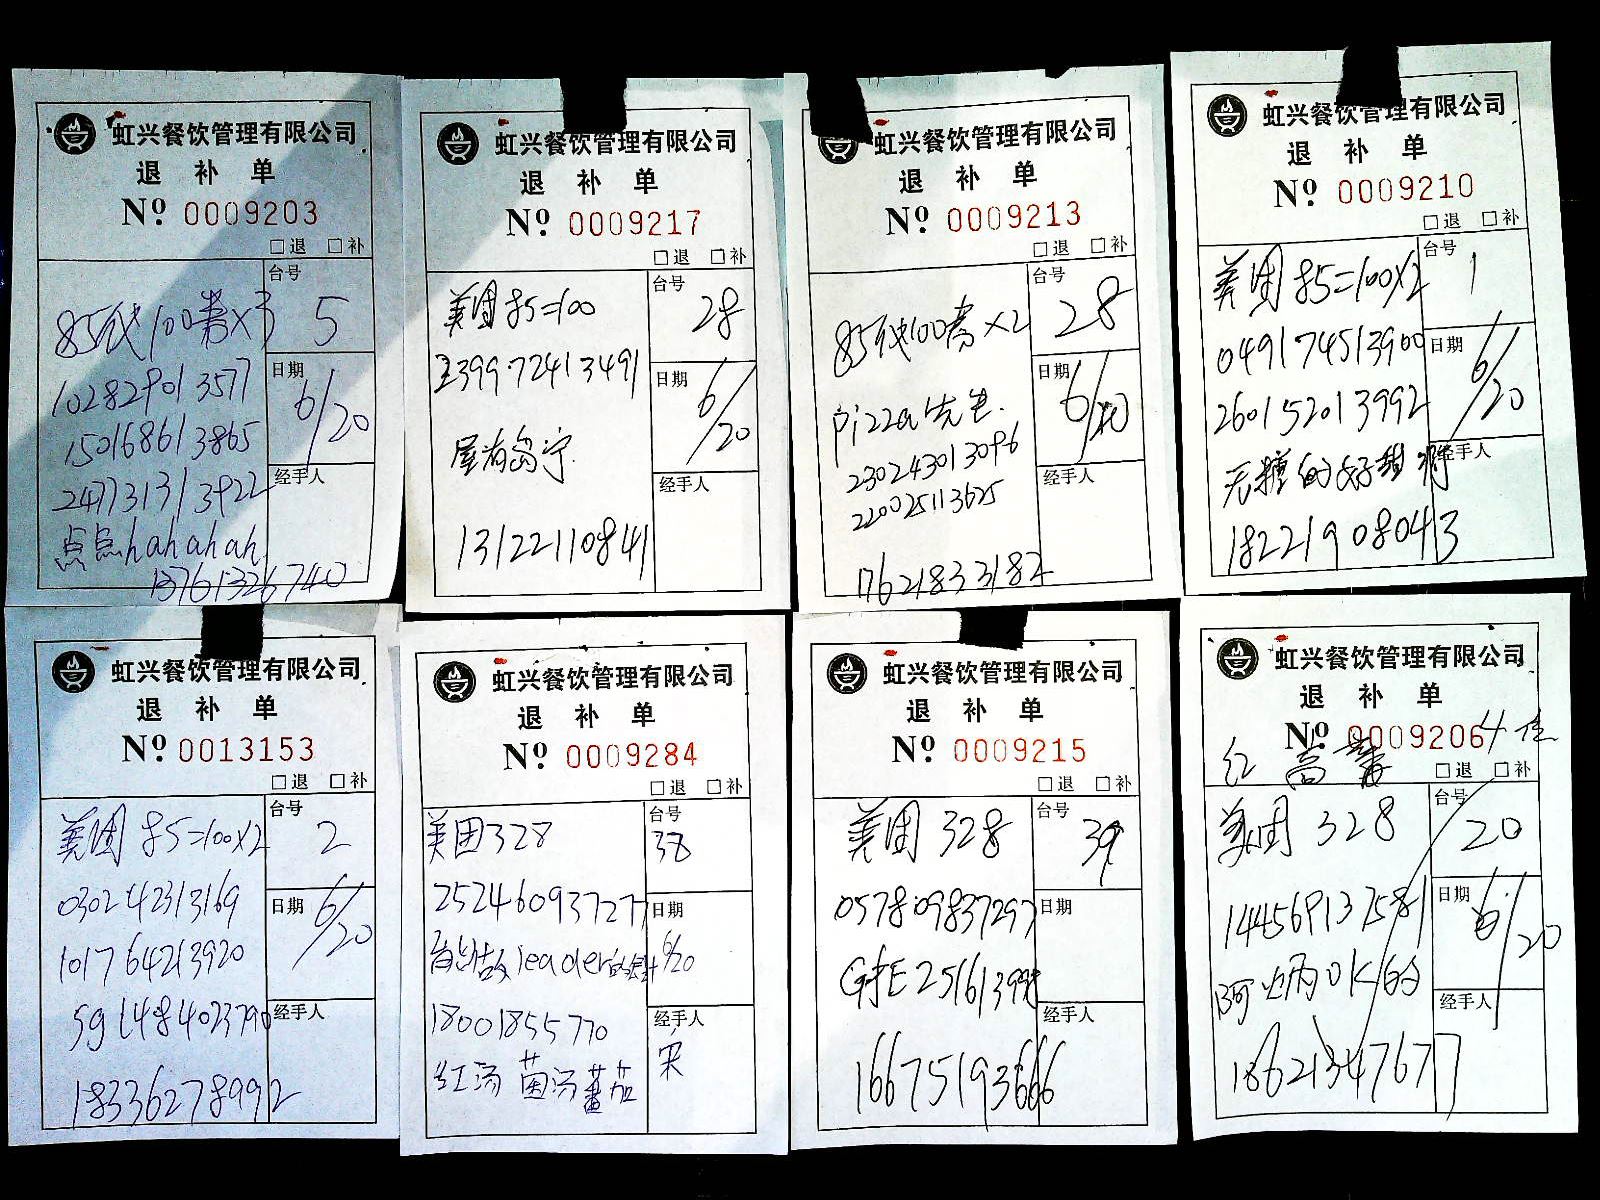 虹兴餐饮管理有限公司
退 补 单
Nº 0009203
□退 □补
台号
5
85代100券×3
日期
6/20
102829013577
150168613865
247731313922
经手人
点点hahahah
13761326740
虹兴餐饮管理有限公司
退 补 单
Nº 0009217
□退 □补
台号
28
美团85=100
日期
6/20
239972413491
经手人
13122110841
虹兴餐饮管理有限公司
退 补 单
Nº 0009213
□退 □补
台号
28
85代100券×2
日期
6/20
pizza先生.
230243013096
220025113625
经手人
17621833182
虹兴餐饮管理有限公司
退 补 单
Nº 0009210
□退 □补
台号
1
美团85=100×2
日期
6/20
049174513900
260152013992
经手人
无糖的好甜呀
18221908043
虹兴餐饮管理有限公司
退 补 单
Nº 0013153
□退 □补
台号
2
美团85=100×2
日期
6/20
030242313169
101764213920
经手人
sgl484023790
18336278992
虹兴餐饮管理有限公司
退 补 单
Nº 0009284
□退 □补
台号
38
美团328
日期
6/20
252460937277
leader的
经手人
宋
18001855770
红汤 菌汤 蕃茄
虹兴餐饮管理有限公司
退 补 单
Nº 0009215
□退 □补
台号
39
美团 328
日期
057809837297
经手人
16675193666
虹兴餐饮管理有限公司
退 补 单
Nº 0009206
4位
红
□退 □补
台号
20
美团 328
日期
6/20
144569137581
经手人
18621347677